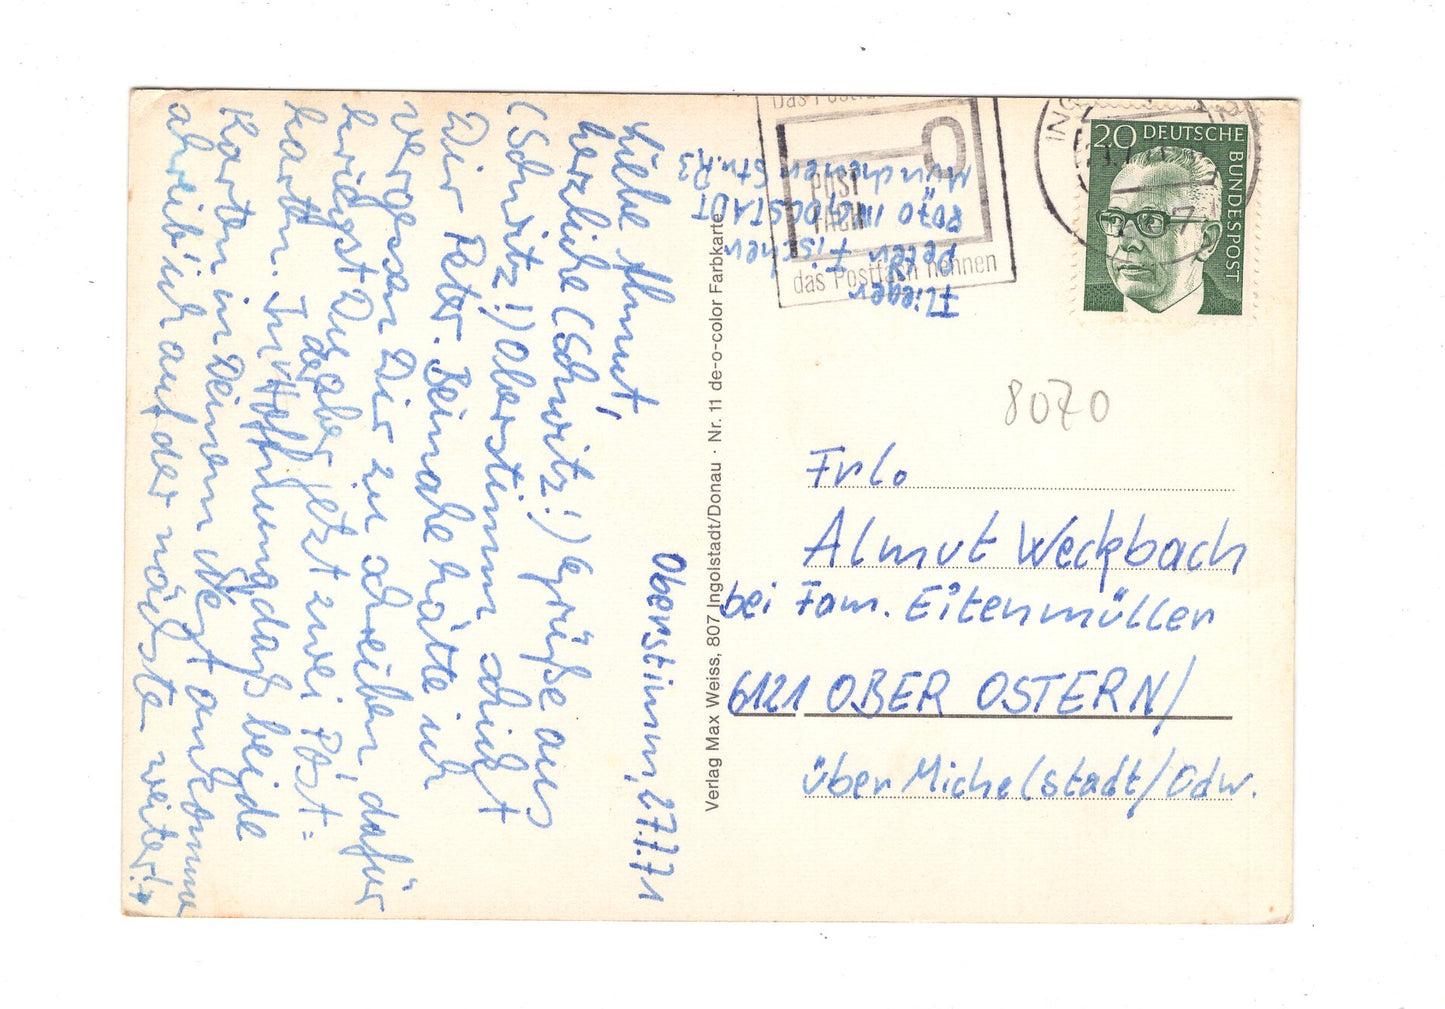 Oberstimm, 27.7.71
Liebe Almut,
herzliche (Schwitz!) Grüße aus
(Schwitz!) Oberstimm schickt
Dir Peter. Beinahe hätte ich
vergessen Dir zu schreiben, dafür
kriegst Du aber jetzt zwei Post=
karten. In der Hoffnung, daß beide
Karten in Deinem Weg ankommen
schreib' ich auf der nächsten weiter!→
Verlag Max Weiss, 807 Ingolstadt/Donau · Nr. 11 de-o-color Farbkarte
Flieger
Peter Fischer
8070 INGOLSTADT
Münchener Str.
Das Postfach
POST
FACH
das Postfach nennen
20 DEUTSCHE
BUNDESPOST
8070
Frl.
Almut Weckbach
bei Fam. Eitenmüller
6121 OBER OSTERN/
über Michelstadt/Odw.